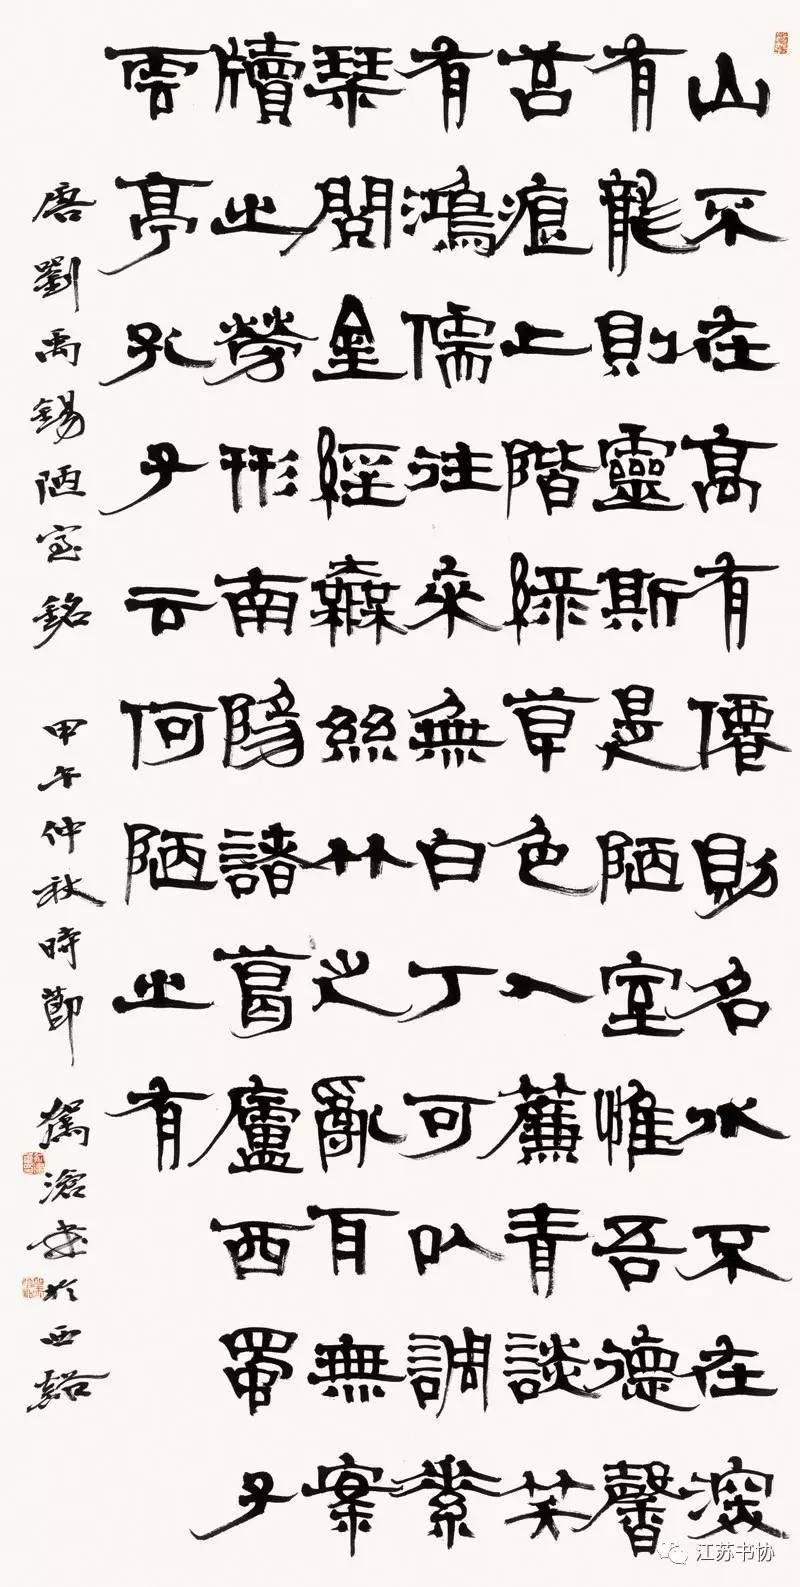 山不在高有僊則名水不在深
有龍則靈斯是陋室惟吾德馨
苔痕上階緑草色入簾青談笑
有鴻儒往來無白丁可以調素
琹閱金經無絲竹之亂耳無案
牘之勞形南陽諸葛廬西蜀子
雲亭孔子云何陋之有
唐劉禹錫陋室銘 甲午仲秋時節 滄書於西谿
江苏书协